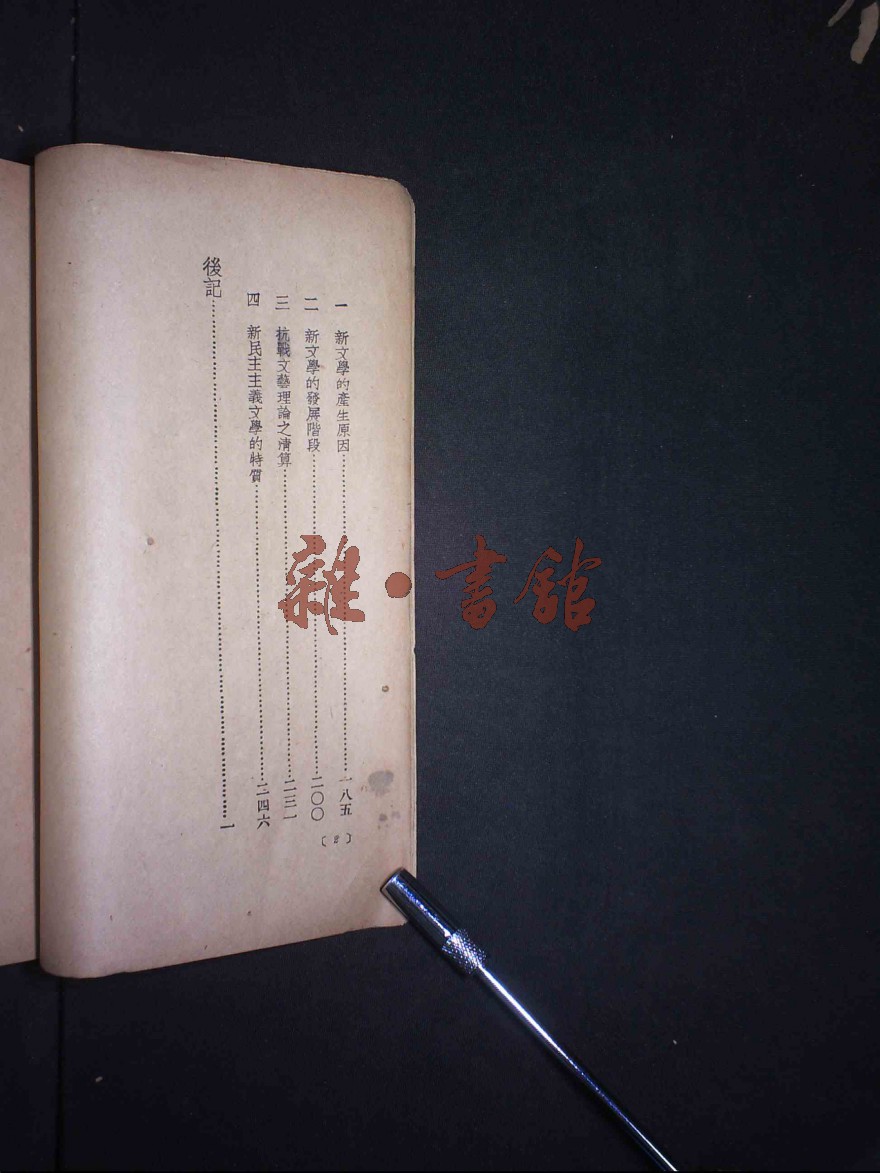 一 新文學的產生原因……一八五
二 新文學的發展階段……二〇〇
三 抗戰文藝理論之清算……二三一
四 新民主主義文學的特質……二四六
後記……一
〔2〕
雜·書館